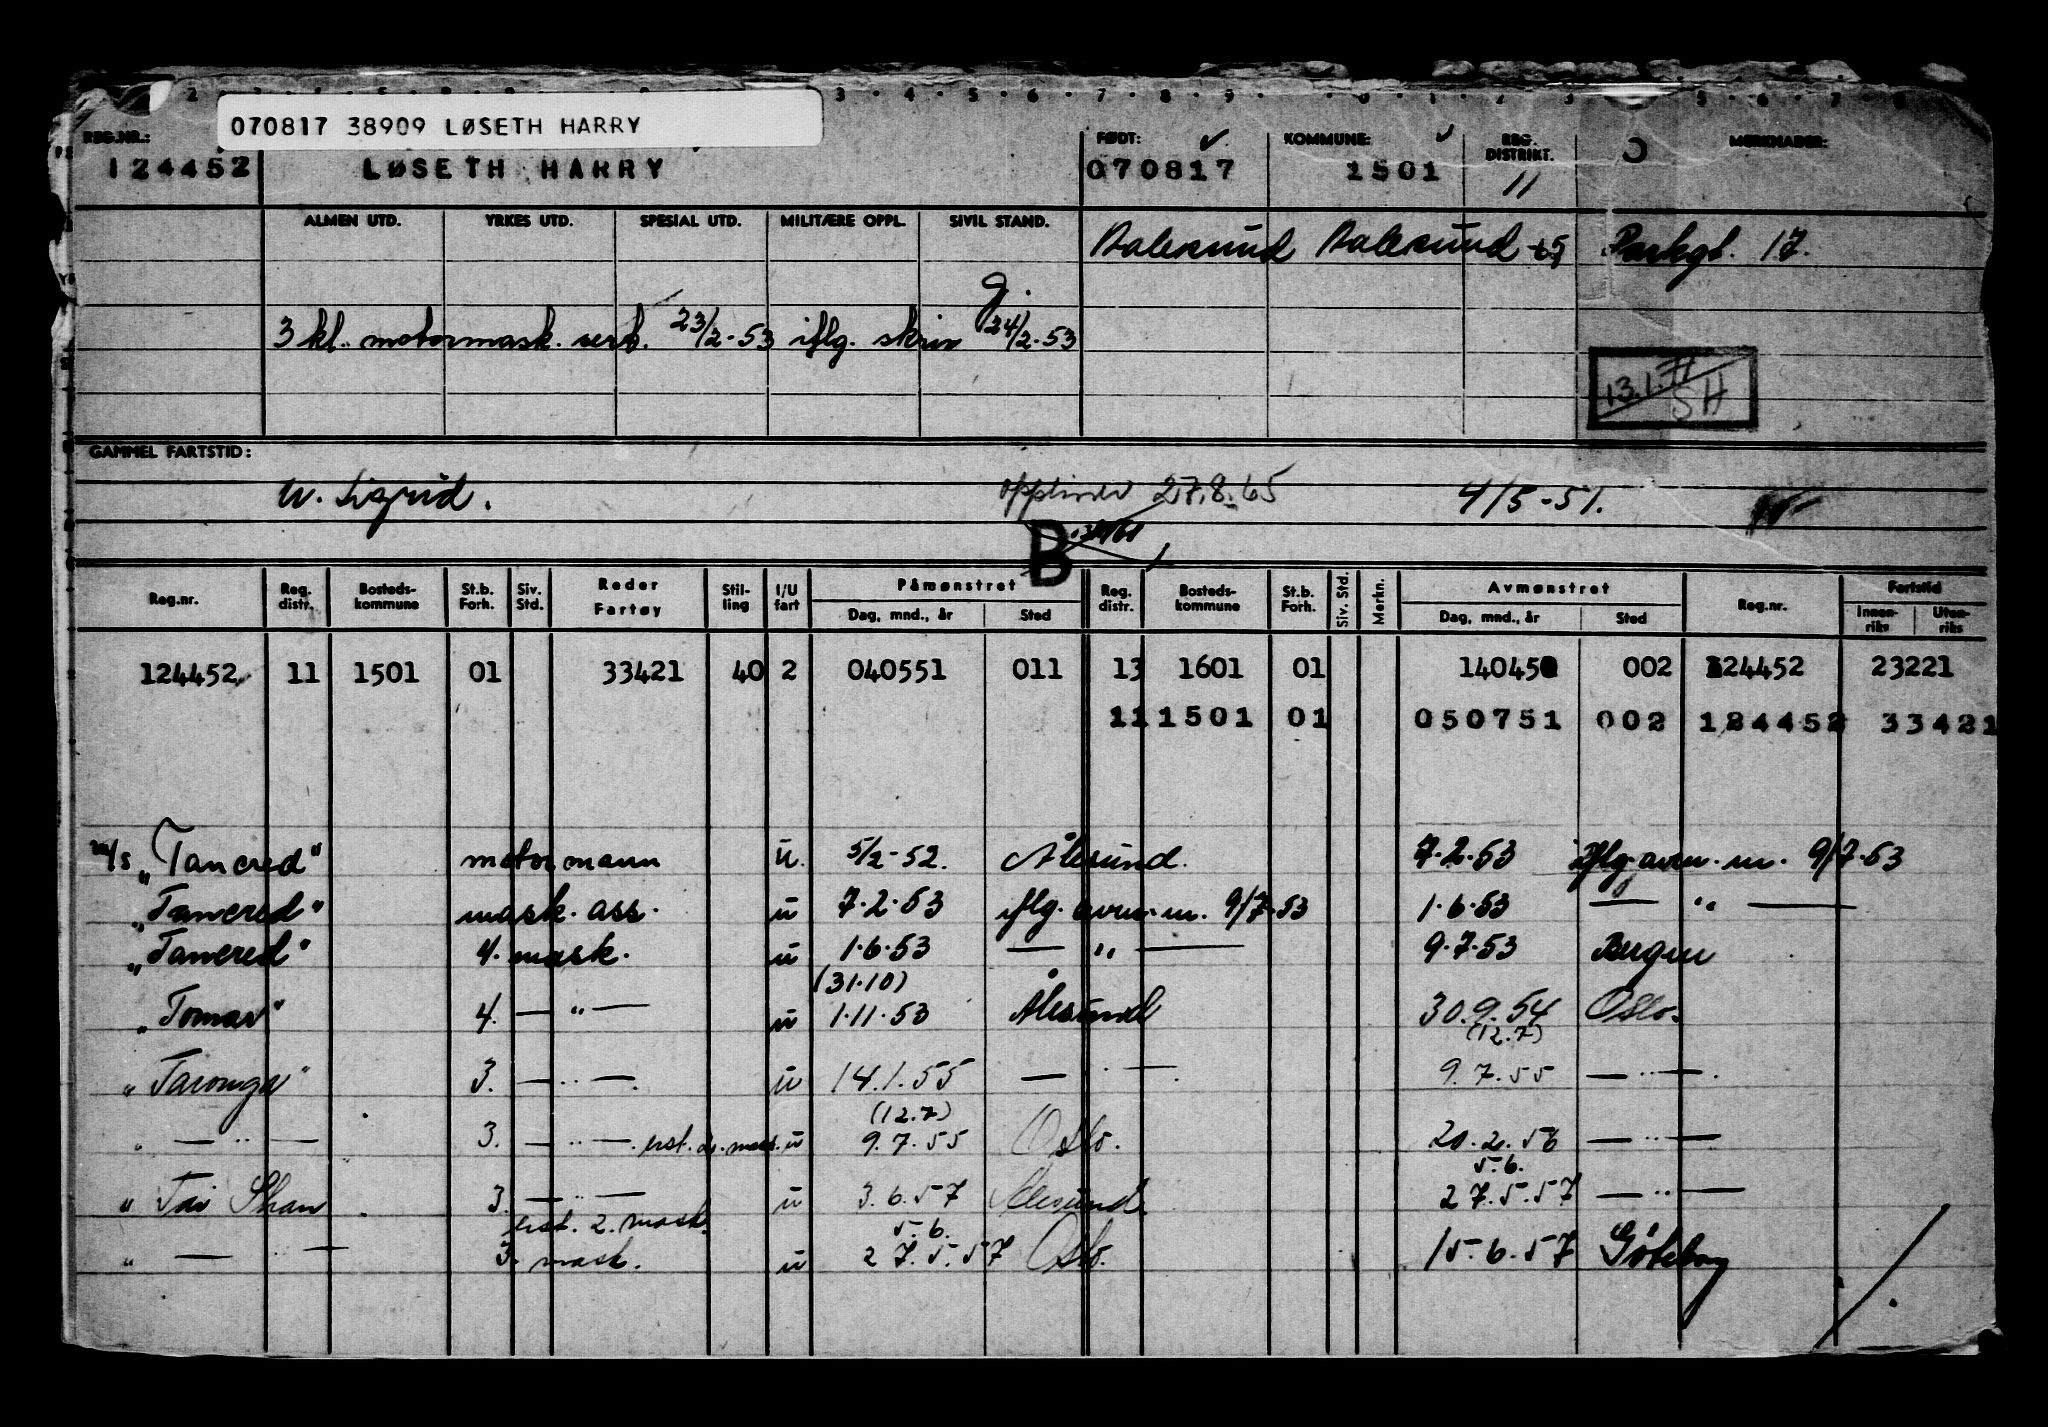 070817 38909 LØSETH HARRY
REG.NR.: FØDT: KOMMUNE: REG. DISTRIKT. MERKNADER:
124452 LØSETH HARRY 070817 1501 11
ALMEN UTD. YRKES UTD. SPESIAL UTD. MILITÆRE OPPL. SIVIL STAND.
Aalesund Aalesund Parkgt. 17.
g.
3 kl. motormask. sert. 23/2-53 iflg. skriv 24/2.53
13.1.71
SH
GAMMEL FARTSTID:
w. Sigrid. 27.8.65 4/5-51.
B
Reg.nr. Reg. distr. Bosteds-kommune St.b. Forh. Siv. Std. Reder Fartøy Stil-ling I/U fart Påmønstret Dag, mnd., år Sted Reg. distr. Bosteds-kommune St.b. Forh. Siv. Std. Merkn. Avmønstret Dag, mnd., år Sted Reg.nr. Fartstid Innen-riks Uten-riks
124452 11 1501 01 33421 40 2 040551 011 13 1601 01 14045 002 124452 23221
11 1501 01 050751 002 124452 33421
m/s "Tancred" motormann u. 5/2-52. Ålesund. 7.2.53 iflg. avm. m. 9/7.53
"Tancred" mask. ass. u 7.2.53 iflg. avm. m. 9/7-53 1.6.53 — " —
"Tancred" 4. mask. u 1.6.53 — " — 9.7.53 Bergen
(31.10)
"Tomar" 4. — " — u 1.11.53 Ålesund 30.9.54 Oslo.
(12.7)
"Taronga" 3. — " —. u 14.1.55 — " —. 9.7.55 — " —.
(12.7)
" — " — 3. — " —. erst. 2. mask. u 9.7.55 Oslo. 20.2.56 — " —
5.6.
" Tai Shan 3. — " — u 3.6.57 Ålesund. 27.5.57 — " —
erst. 2. mask. 5.6.
" — " — 3. mask. u 27.5.57 Oslo. 15.6.57 Göteborg